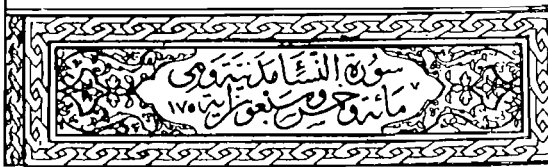 سورة النسا مدنية وهى
مائة وخمس وسبعون اية ١٧٥